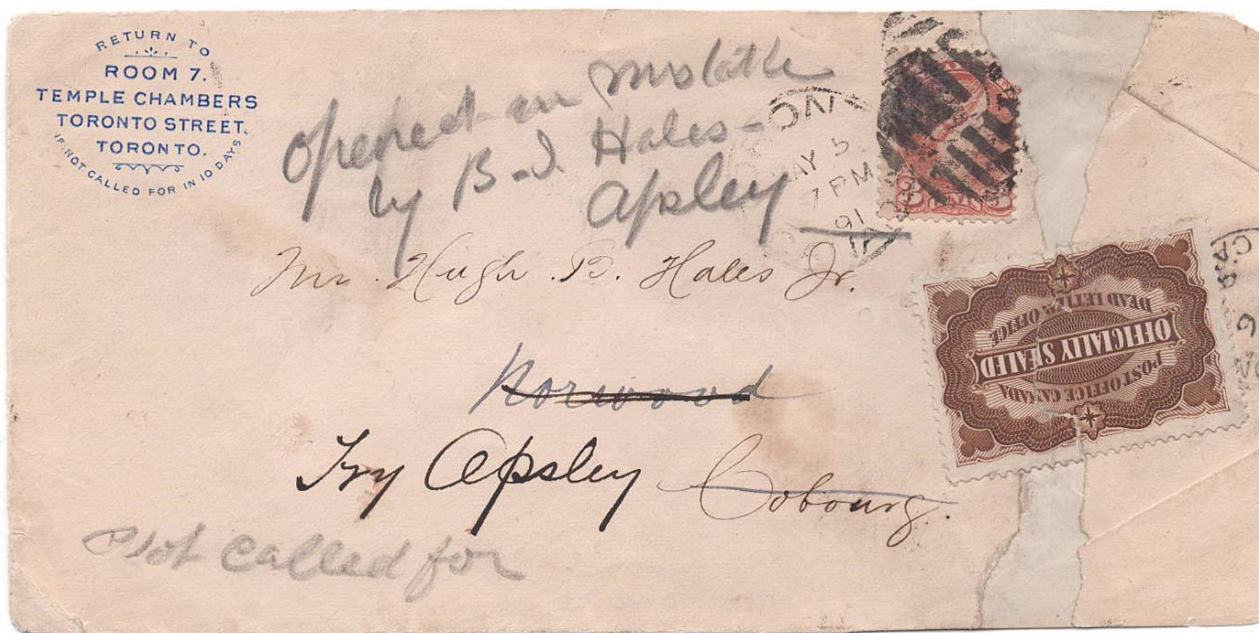 RETURN TO
ROOM 7.
TEMPLE CHAMBERS
TORONTO STREET,
TORONTO.
IF NOT CALLED FOR IN 10 DAYS
opened in mistake
by B. J. Hales
Apsley
ON
MAY 5
7 PM
91
Mr. Hugh B. Hales Jr.
Norwood
Try Apsley Cobourg.
Not called for
POST OFFICE CANADA
OFFICIALLY SEALED
DEAD LETTER OFFICE